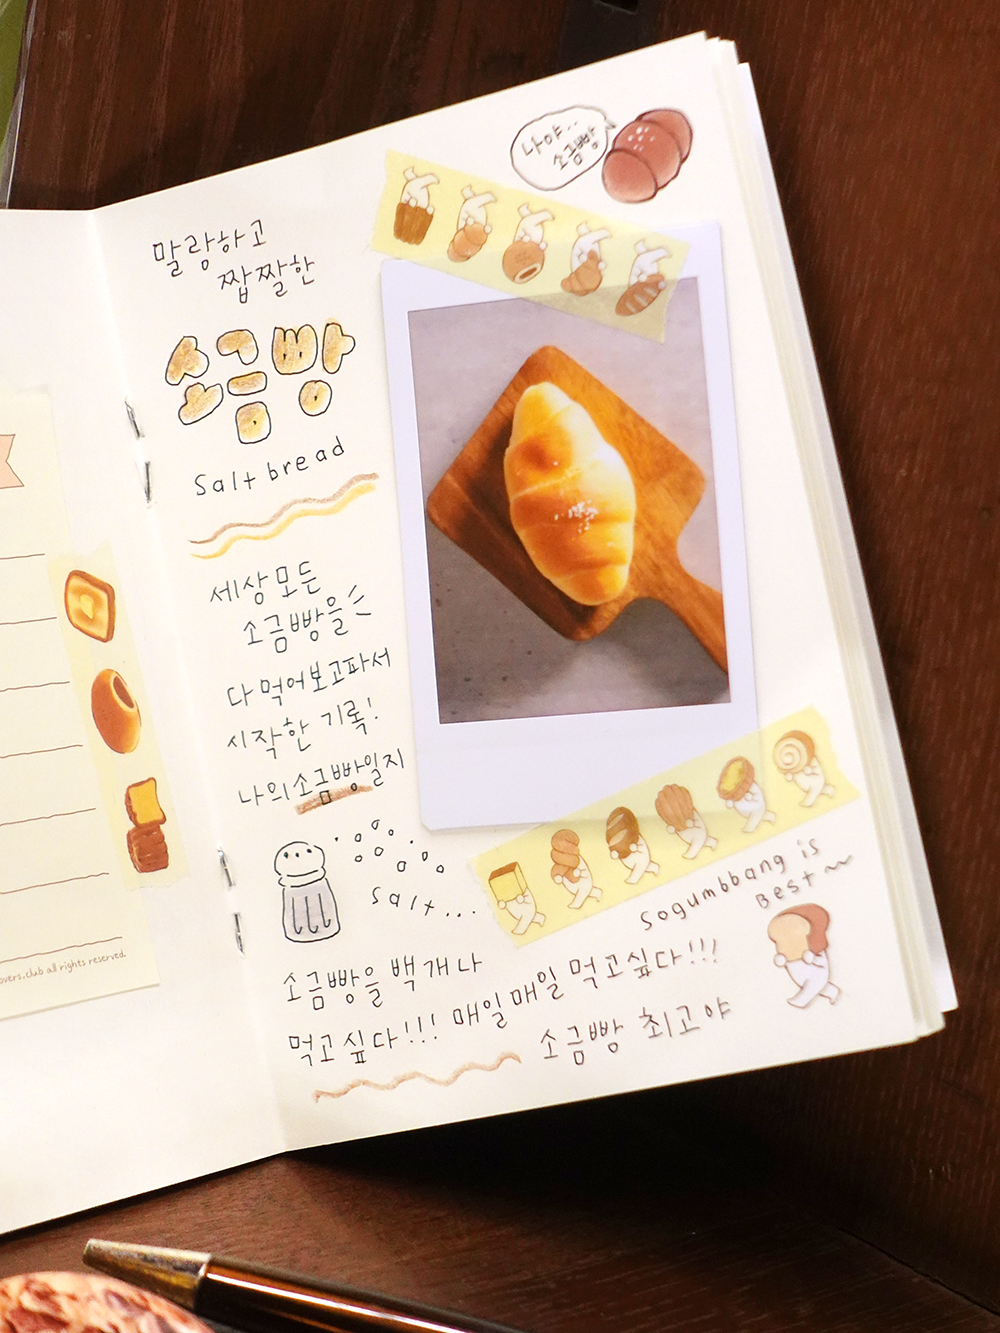 나야..
소금빵
말랑하고
짭짤한
소금빵
Salt bread
세상 모든
소금빵을
다 먹어보고파서
시작한 기록!
나의 소금빵일지
salt...
sogumbbang is
Best~
소금빵을 백 개나
먹고싶다!!! 매일매일 먹고싶다!!!
소금빵 최고야
overs.club all rights reserved.